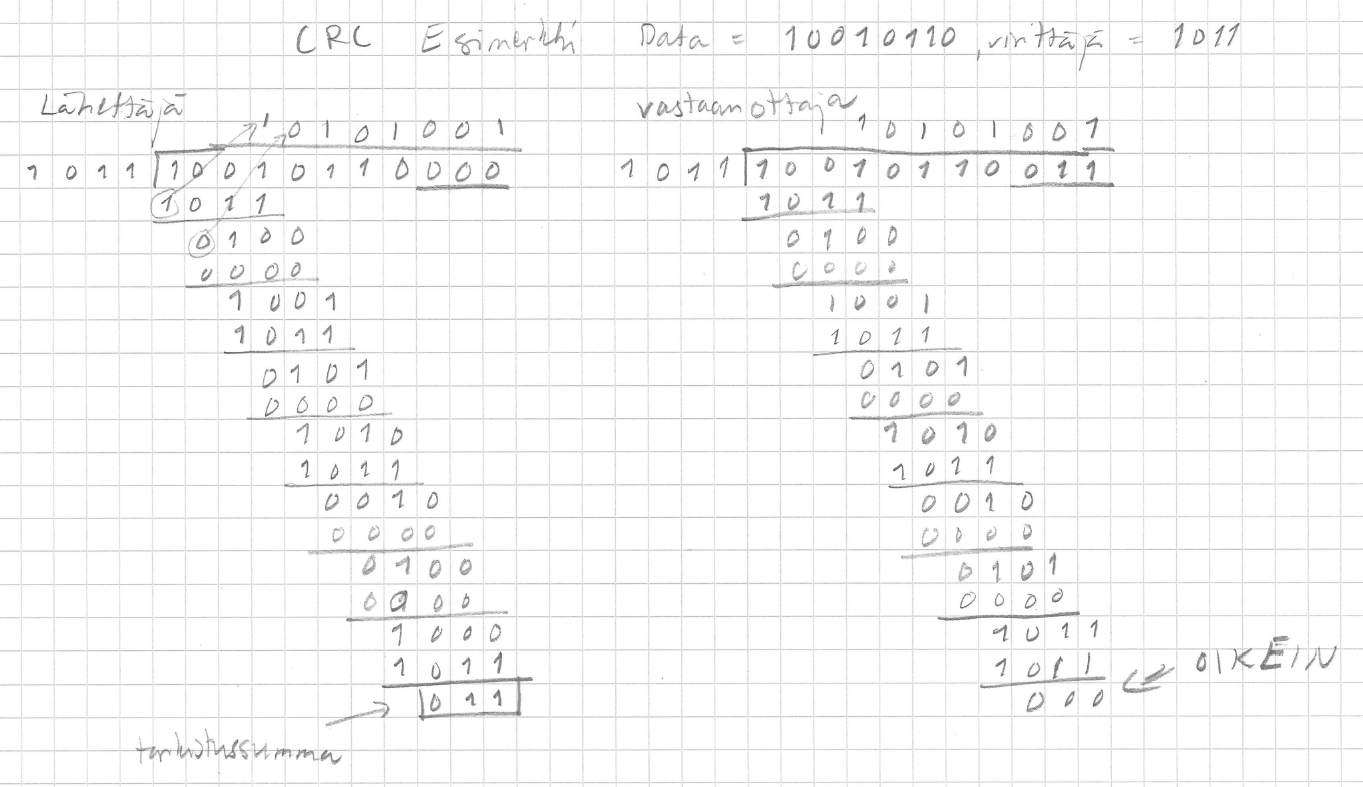 CRC Esimerkki Data = 10010110, virittäjä = 1011
Lähettäjä
1 0 1 0 1 0 0 1
1 0 1 1 1 0 0 1 0 1 1 0 0 0 0
1 0 1 1
0 1 0 0
0 0 0 0
1 0 0 1
1 0 1 1
0 1 0 1
0 0 0 0
1 0 1 0
1 0 1 1
0 0 1 0
0 0 0 0
0 1 0 0
0 0 0 0
1 0 0 0
1 0 1 1
0 1 1
tarkistussumma
vastaanottaja
1 0 1 0 1 0 0 1
1 0 1 1 1 0 0 1 0 1 1 0 0 1 1
1 0 1 1
0 1 0 0
0 0 0 0
1 0 0 1
1 0 1 1
0 1 0 1
0 0 0 0
1 0 1 0
1 0 1 1
0 0 1 0
0 0 0 0
0 1 0 1
0 0 0 0
1 0 1 1
1 0 1 1
0 0 0
OIKEIN